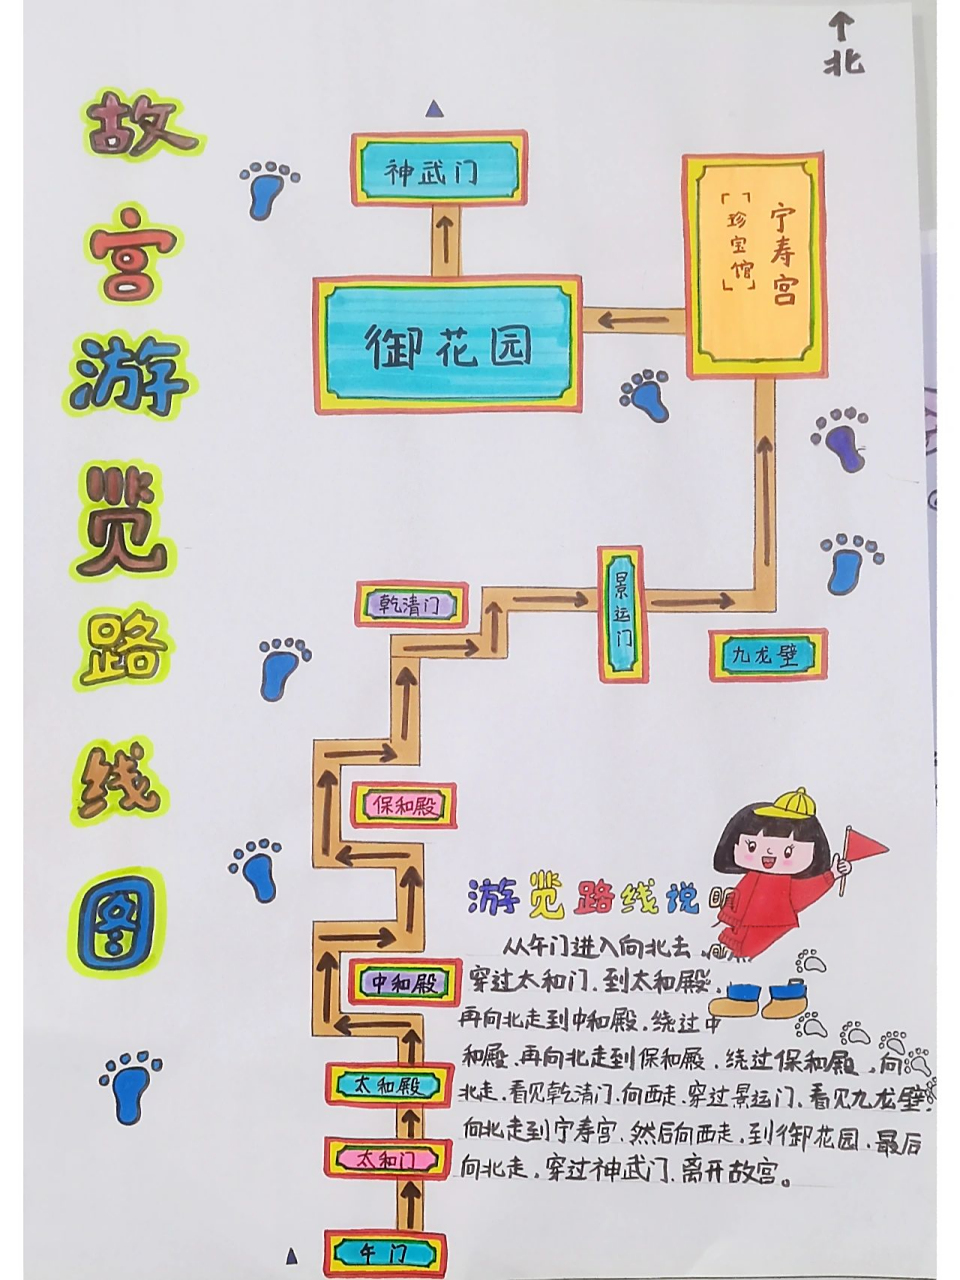 故宫游览路线图
北
神武门
御花园
宁寿宫
「珍宝馆」
景运门
乾清门
九龙壁
保和殿
中和殿
太和殿
太和门
午门
游览路线说明
从午门进入向北去，
穿过太和门，到太和殿，
再向北走到中和殿，绕过中
和殿，再向北走到保和殿，绕过保和殿，向
北走，看见乾清门，向西走，穿过景运门，看见九龙壁，
向北走到宁寿宫，然后向西走，到御花园，最后
向北走，穿过神武门，离开故宫。